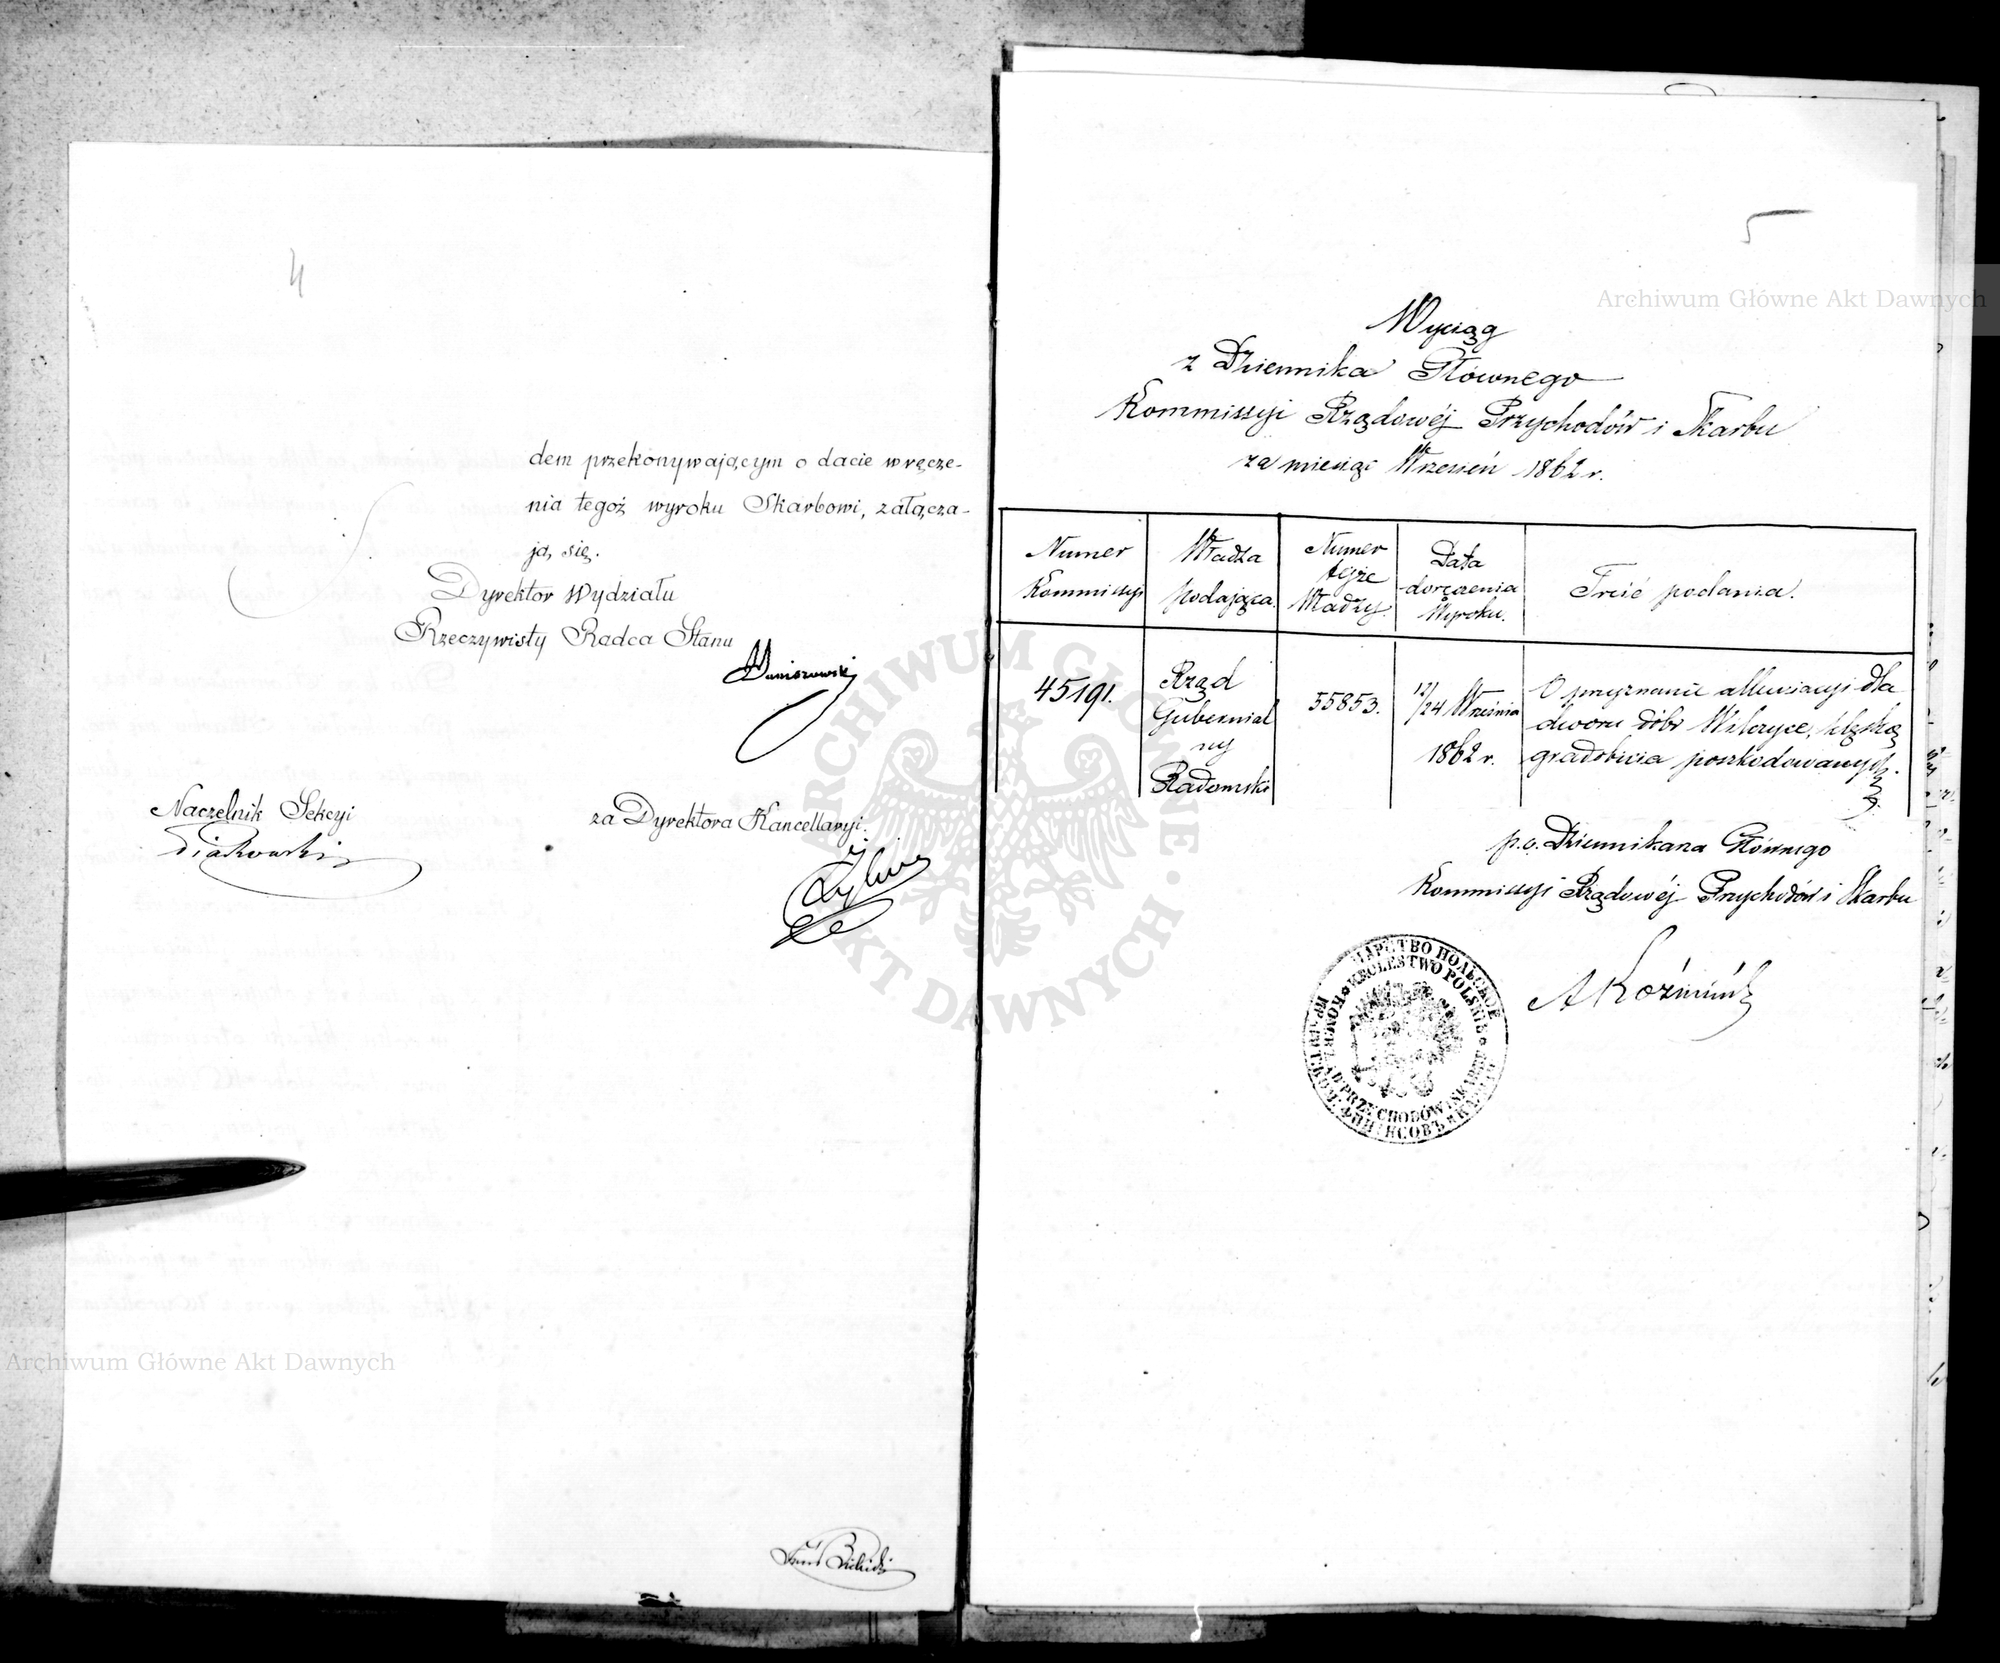 4
dem przekonywającym o dacie wręcze-
nia tegoż wyroku Skarbowi, załącza-
ją się.
Dyrektor Wydziału
Rzeczywisty Radca Stanu
Naczelnik Sekcyi
za Dyrektora Kancellaryi.
5
Wyciąg
z Dziennika Głównego
Kommissyi Rządowéj Przychodów i Skarbu
za miesiąc Wrzesień 1862 r.
Numer
Kommissyi
Władza
podająca.
Numer
tejże
Władzy.
Data
doręczenia
Wyroku.
Treść podania.
45191.
Rząd
Gubernial
ny
Radomski
55853.
12/24 Września
1862 r.
O przyznanie allewiacyi dla
dworu dóbr Wilczyce, klęską
gradobicia poszkodowanych.
p.o. Dziennikarza Głównego
Kommissyi Rządowéj Przychodów i Skarbu
A Koźmiński
ЦАРСТВО ПОЛЬСКОЕ
KRÓLESTWO POLSKIE
PRZYCHODÓW I SKARBU
Archiwum Główne Akt Dawnych
Archiwum Główne Akt Dawnych
ARCHIWUM GŁÓWNE AKT DAWNYCH